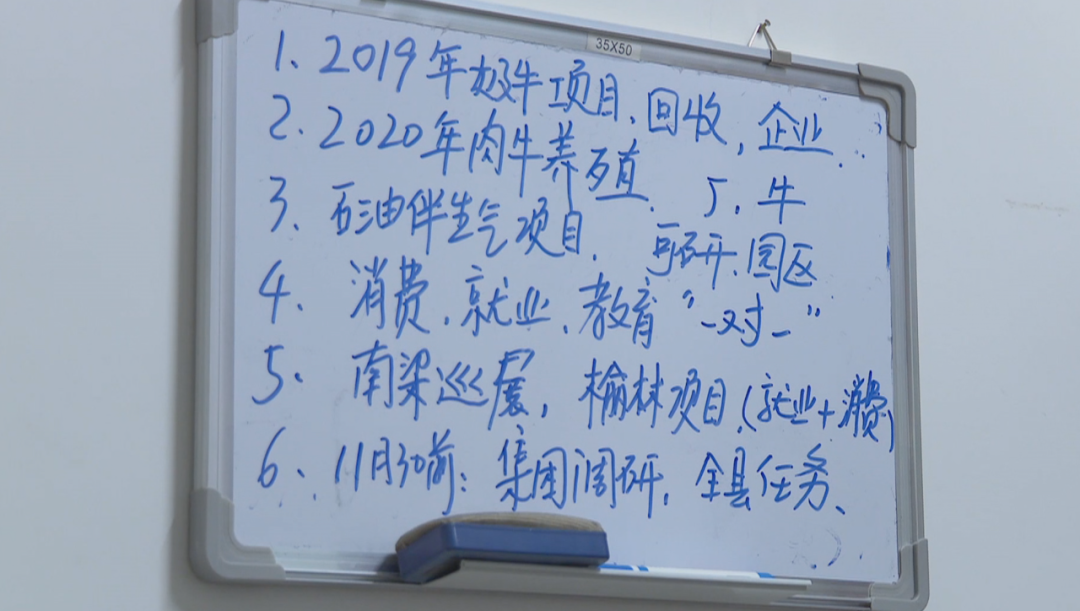 35X50
1、2019年奶牛项目、回收,企业
2、2020年肉牛养殖、厂、牛
3、石油伴生气项目、可研、园区
4、消费、就业、教育“一对一”
5、南梁巡展,榆林项目(就业+消费)
6、11月30前:集团调研,全县任务、